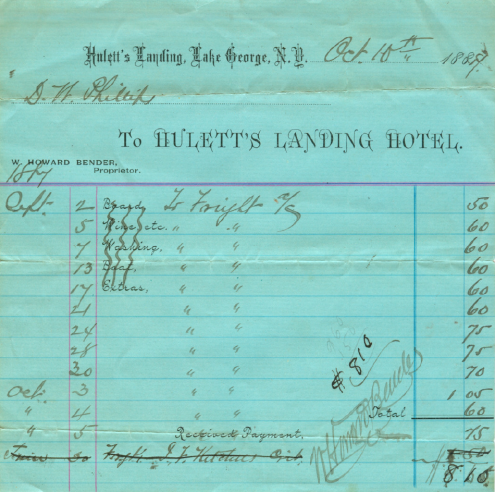 Hulett's Landing, Lake George, N.Y. Oct. 10th 1887.
D. W. Phillips
To HULETT'S LANDING HOTEL.
W. HOWARD BENDER,
Proprietor.
1887
Sept. 2 Board, To Freight a/c 50
5 Wine etc. " " 60
7 Washing, " " 60
13 Boat, " " 60
17 Extras, " " 60
21 " " 60
24 " " 75
28 " " 75
30 " " 70
Oct. 3 " " 1 05
" 4 " " Total 60
" 5 Received Payment, 75
$ 8 10
W. Howard Bender
30 Frght